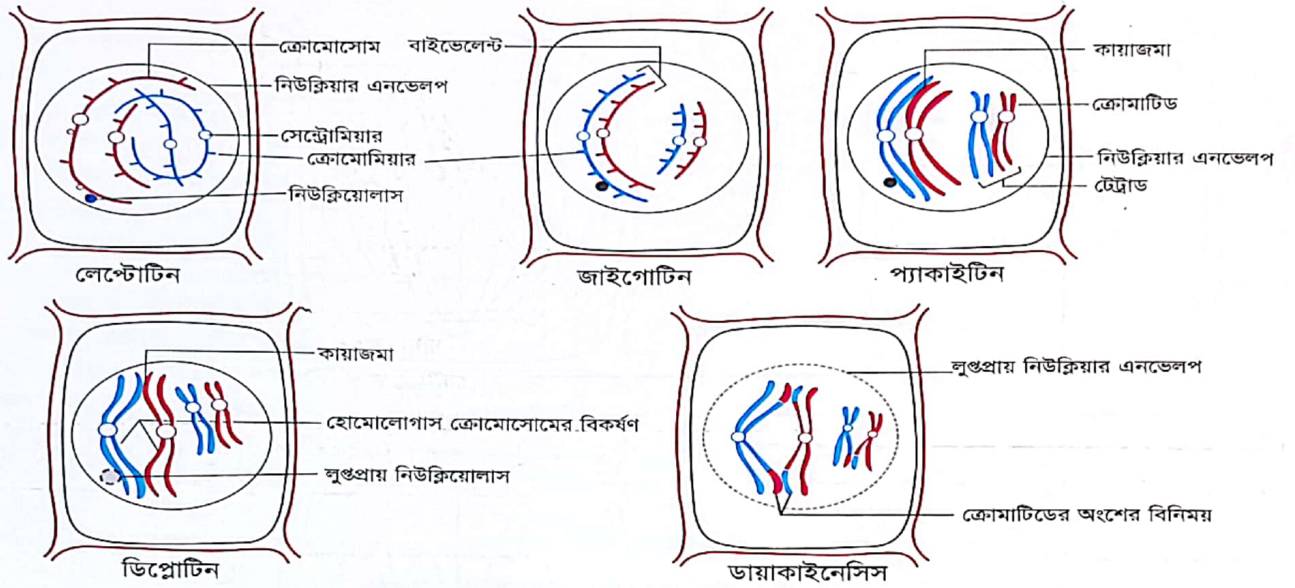 ক্রোমোসোম
নিউক্লিয়ার এনভেলপ
সেন্ট্রোমিয়ার
ক্রোমোমিয়ার
নিউক্লিয়োলাস
লেপ্টোটিন
বাইভেলেন্ট
জাইগোটিন
কায়াজমা
ক্রোমাটিড
নিউক্লিয়ার এনভেলপ
টেট্রাড
প্যাকাইটিন
কায়াজমা
হোমোলোগাস ক্রোমোসোমের বিকর্ষণ
লুপ্তপ্রায় নিউক্লিয়োলাস
ডিপ্লোটিন
লুপ্তপ্রায় নিউক্লিয়ার এনভেলপ
ক্রোমাটিডের অংশের বিনিময়
ডায়াকাইনেসিস